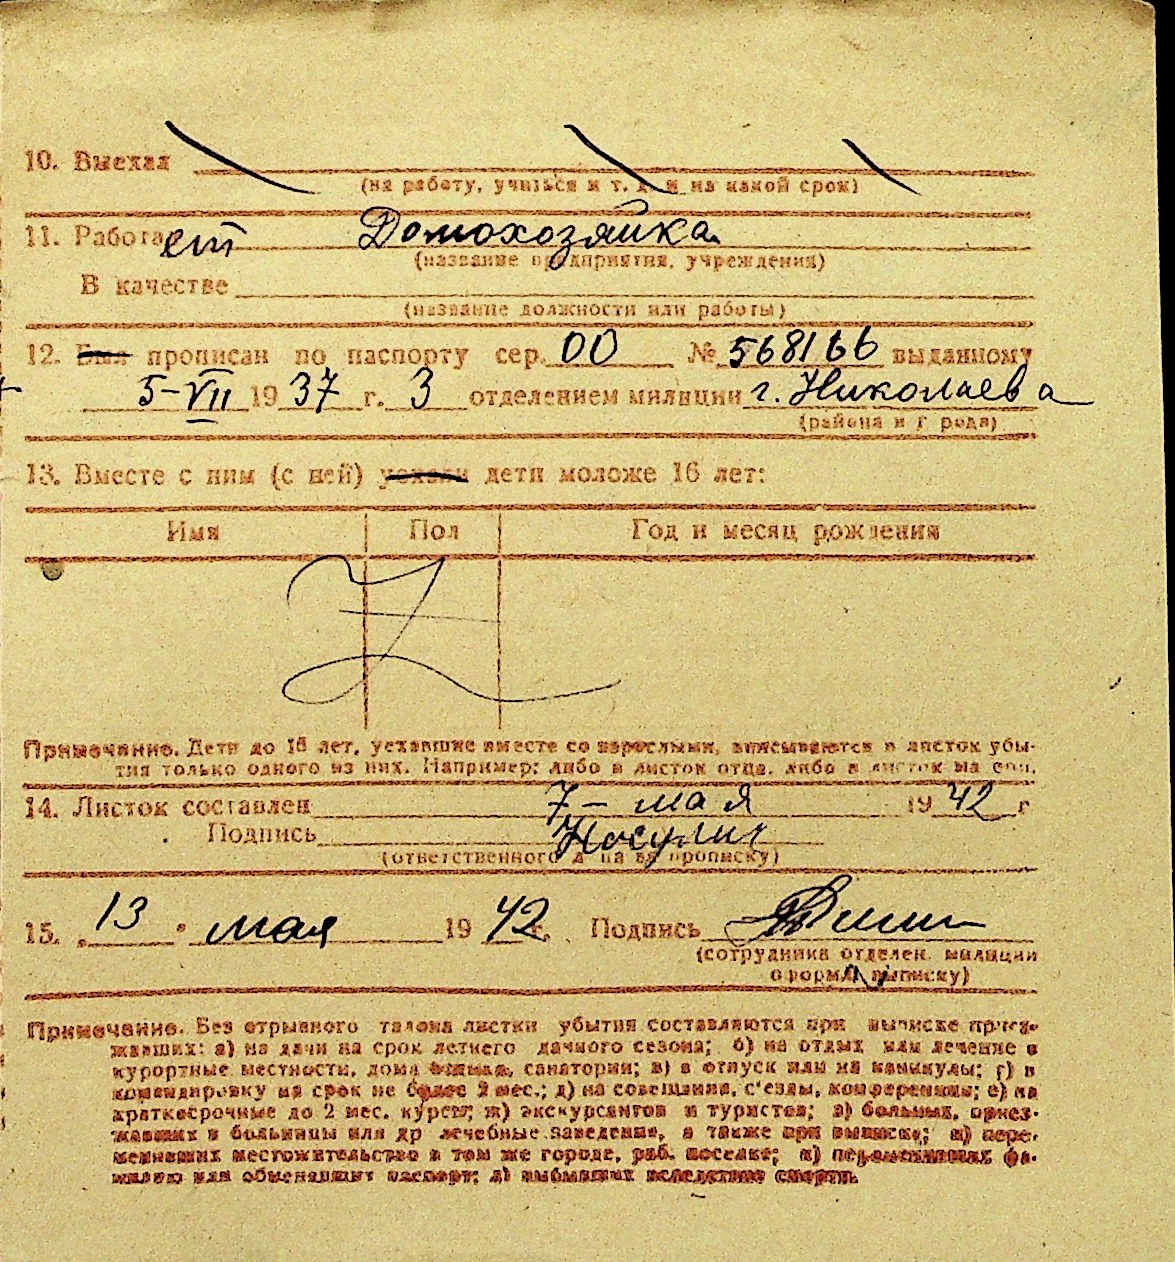 10. Выехал
(на работу, учиться и т. д. и на какой срок)
11. Работает Домохозяйка
(название предприятия, учреждения)
В качестве
(название должности или работы)
12. Был прописан по паспорту сер. ОО № 568166 выданному
5-VII 1937 г. 3 отделением милиции г. Николаева
(района и города)
13. Вместе с ним (с ней) уехали дети моложе 16 лет:
Имя Пол Год и месяц рождения
Z
Примечание. Дети до 16 лет, уехавшие вместе со взрослыми, вписываются в листок убы-
тия только одного из них. Например: либо в листок отца, либо в листок матери.
14. Листок составлен 7 - мая 1942 г
Подпись Носулич
(ответственного за прописку)
15. 13 " мая 1942 г. Подпись
(сотрудника отделен. милиции
оформл. выписку)
Примечание. Без отрывного талона листки убытия составляются при выписке приез-
жавших: а) на дачи на срок летнего дачного сезона; б) на отдых или лечение в
курортные местности, дома отдыха, санатории; в) в отпуск или на каникулы; г) в
командировку на срок не более 2 мес.; д) на совещания, с'езды, конференции; е) на
краткосрочные до 2 мес. курсы; ж) экскурсантов и туристов; з) больных, приез-
жавших в больницы или др лечебные заведения, а также при выписке; и) пере-
менивших местожительство в том же городе, раб. поселке; к) переменивших фа-
милию или обменявших паспорт; л) выбывших вследствие смерти.